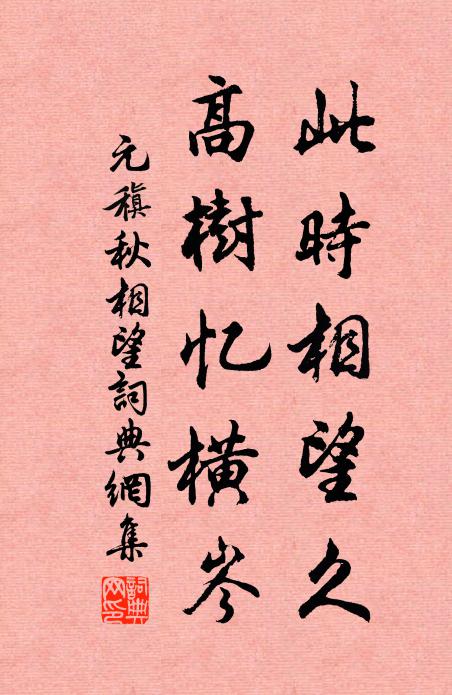 此時相望久
高樹忆横岑
元稹秋相望詞典網集
詞典網印